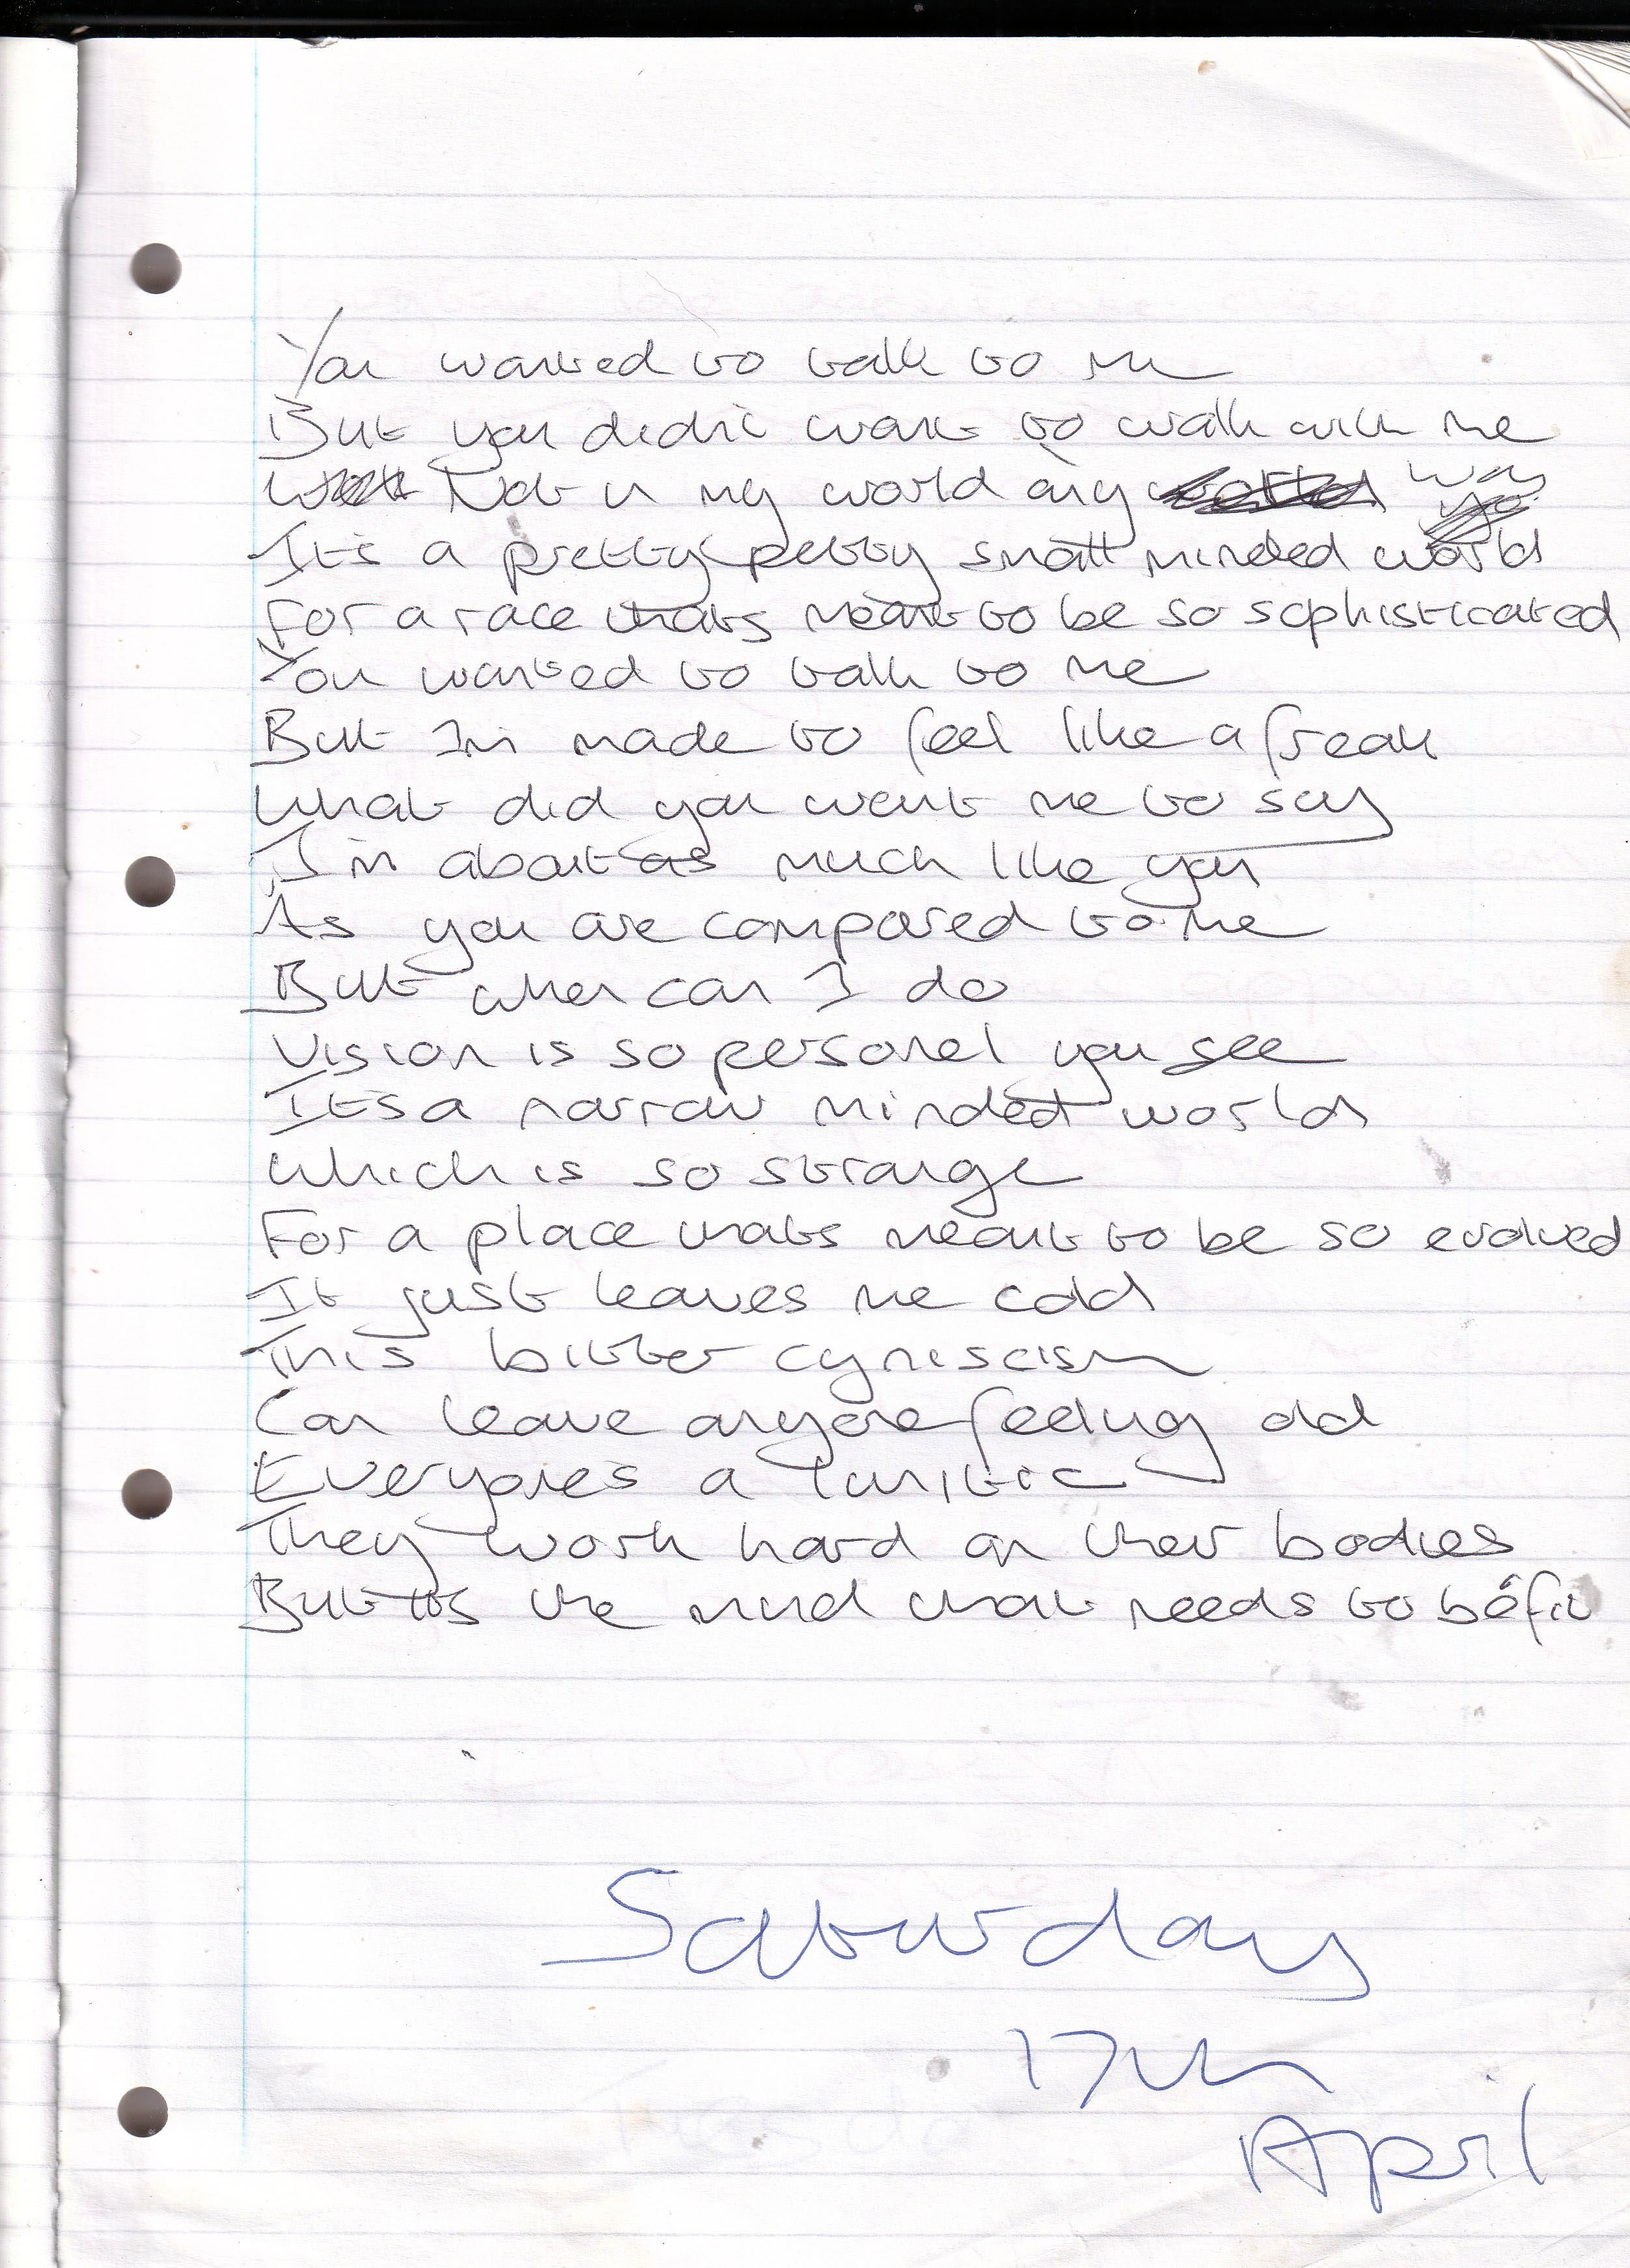 You wanted to talk to me
But you didn't want to walk with me
Not in my world any way
It's a pretty petty small minded world
For a race thats meant to be so sophisticated
You wanted to talk to me
But Im made to feel like a freak
What did you want me to say
I'm about as much like you
As you are compared to me
But what can I do
Vision is so personel you see
Its a narrow minded world
Which is so strange
For a place thats meant to be so evolved
It just leaves me cold
This bitter cyniscism
Can leave anyone feeling old
Everyone's a
They work hard on their bodies
But its the mind that needs to be fit
Saturday
17th
April